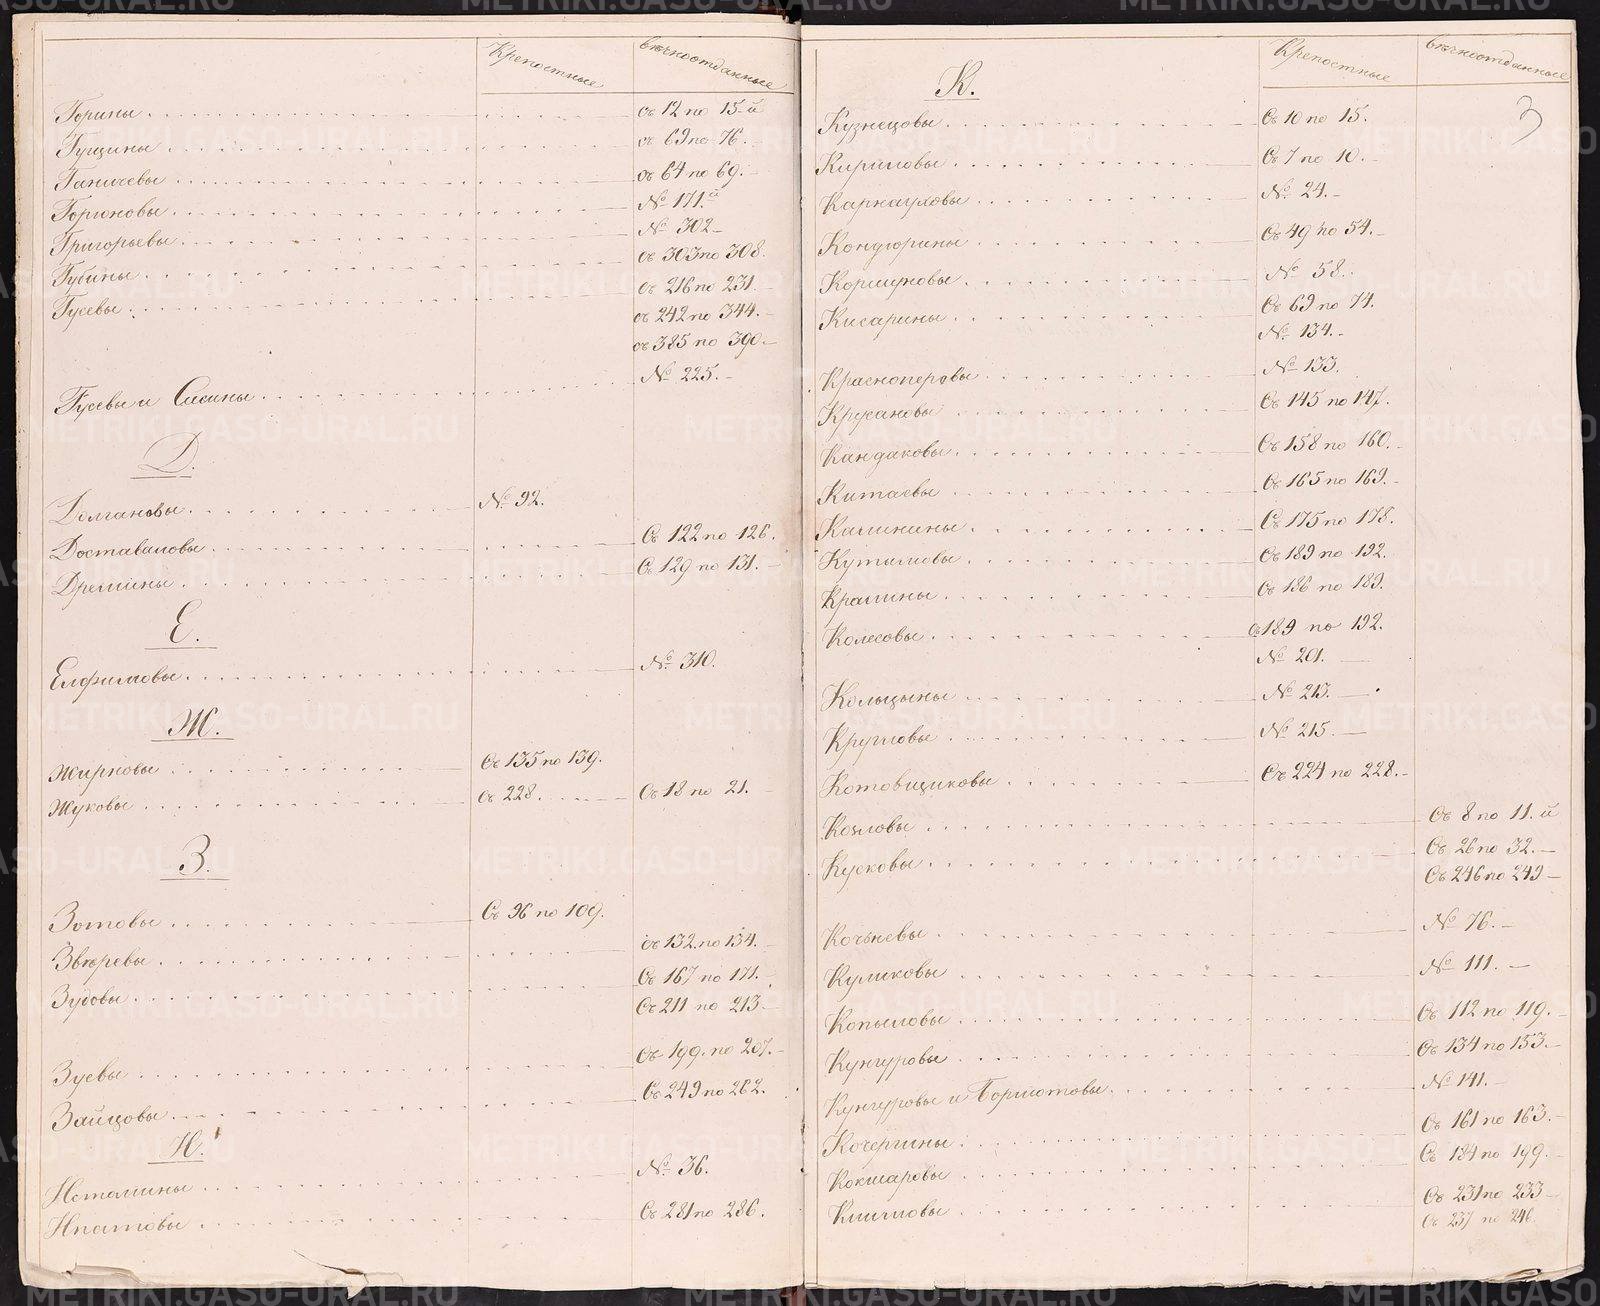 Крепостные вѣчноотданные
Горины съ 12 по 15-й
Гущины съ 69 по 76.
Ганичевы съ 64 по 69.
Гориновы № 171.й
Григорьевы № 302
Губины съ 303 по 308.
Гусевы съ 216 по 231.
съ 242 по 344.
съ 385 по 390
Гусевы и Сисины № 225.
Д.
Долгановы № 92.
Доставаловы Съ 122 по 126.
Дремины Съ 129 по 131.
Е.
Елфимовы № 310.
Ж.
Жирновы Съ 135 по 139.
Жуковы съ 228. Съ 18 по 21.
З.
Зотовы Съ 96 по 109.
Звѣревы съ 132. по 134.
Зубовы Съ 167 по 171.
Съ 211 по 213.
Зуевы Съ 199. по 207.
Зайцовы Съ 249 по 262.
И.
Истомины № 36.
Ипатовы Съ 281 по 286.
К.
Крепостные вѣчноотданные
3
Кузнецовы Съ 10 по 15.
Кириловы Съ 7 по 10.
Карнауховы № 24.
Кондюрины Съ 49 по 54.
Коршуновы № 58.
Кисарины Съ 69 по 74.
№ 134.
Красноперовы № 133.
Крусановы Съ 145 по 147.
Кандаковы Съ 158 по 160.
Китаевы Съ 165 по 169.
Калинины Съ 175 по 178.
Кутымовы Съ 189 по 192.
Крамины Съ 186 по 189.
Колесовы Съ 189 по 192.
№ 201.
Кольцыны № 213.
Кругловы № 215.
Котовщиковы Съ 224 по 228.
Козловы Съ 8 по 11.й
Кусковы Съ 26 по 32.
Съ 246 по 249
Кочьневы № 76.
Куликовы № 111.
Копыловы Съ 112 по 119.
Кунгуровы Съ 134 по 153.
Кунгуровы и Бормотовы № 141.
Кочергины Съ 161 по 163.
Кокшаровы Съ 184 по 199.
Климовы Съ 231 по 233
Съ 237 по 246.
METRIKI.GASO-URAL.RU